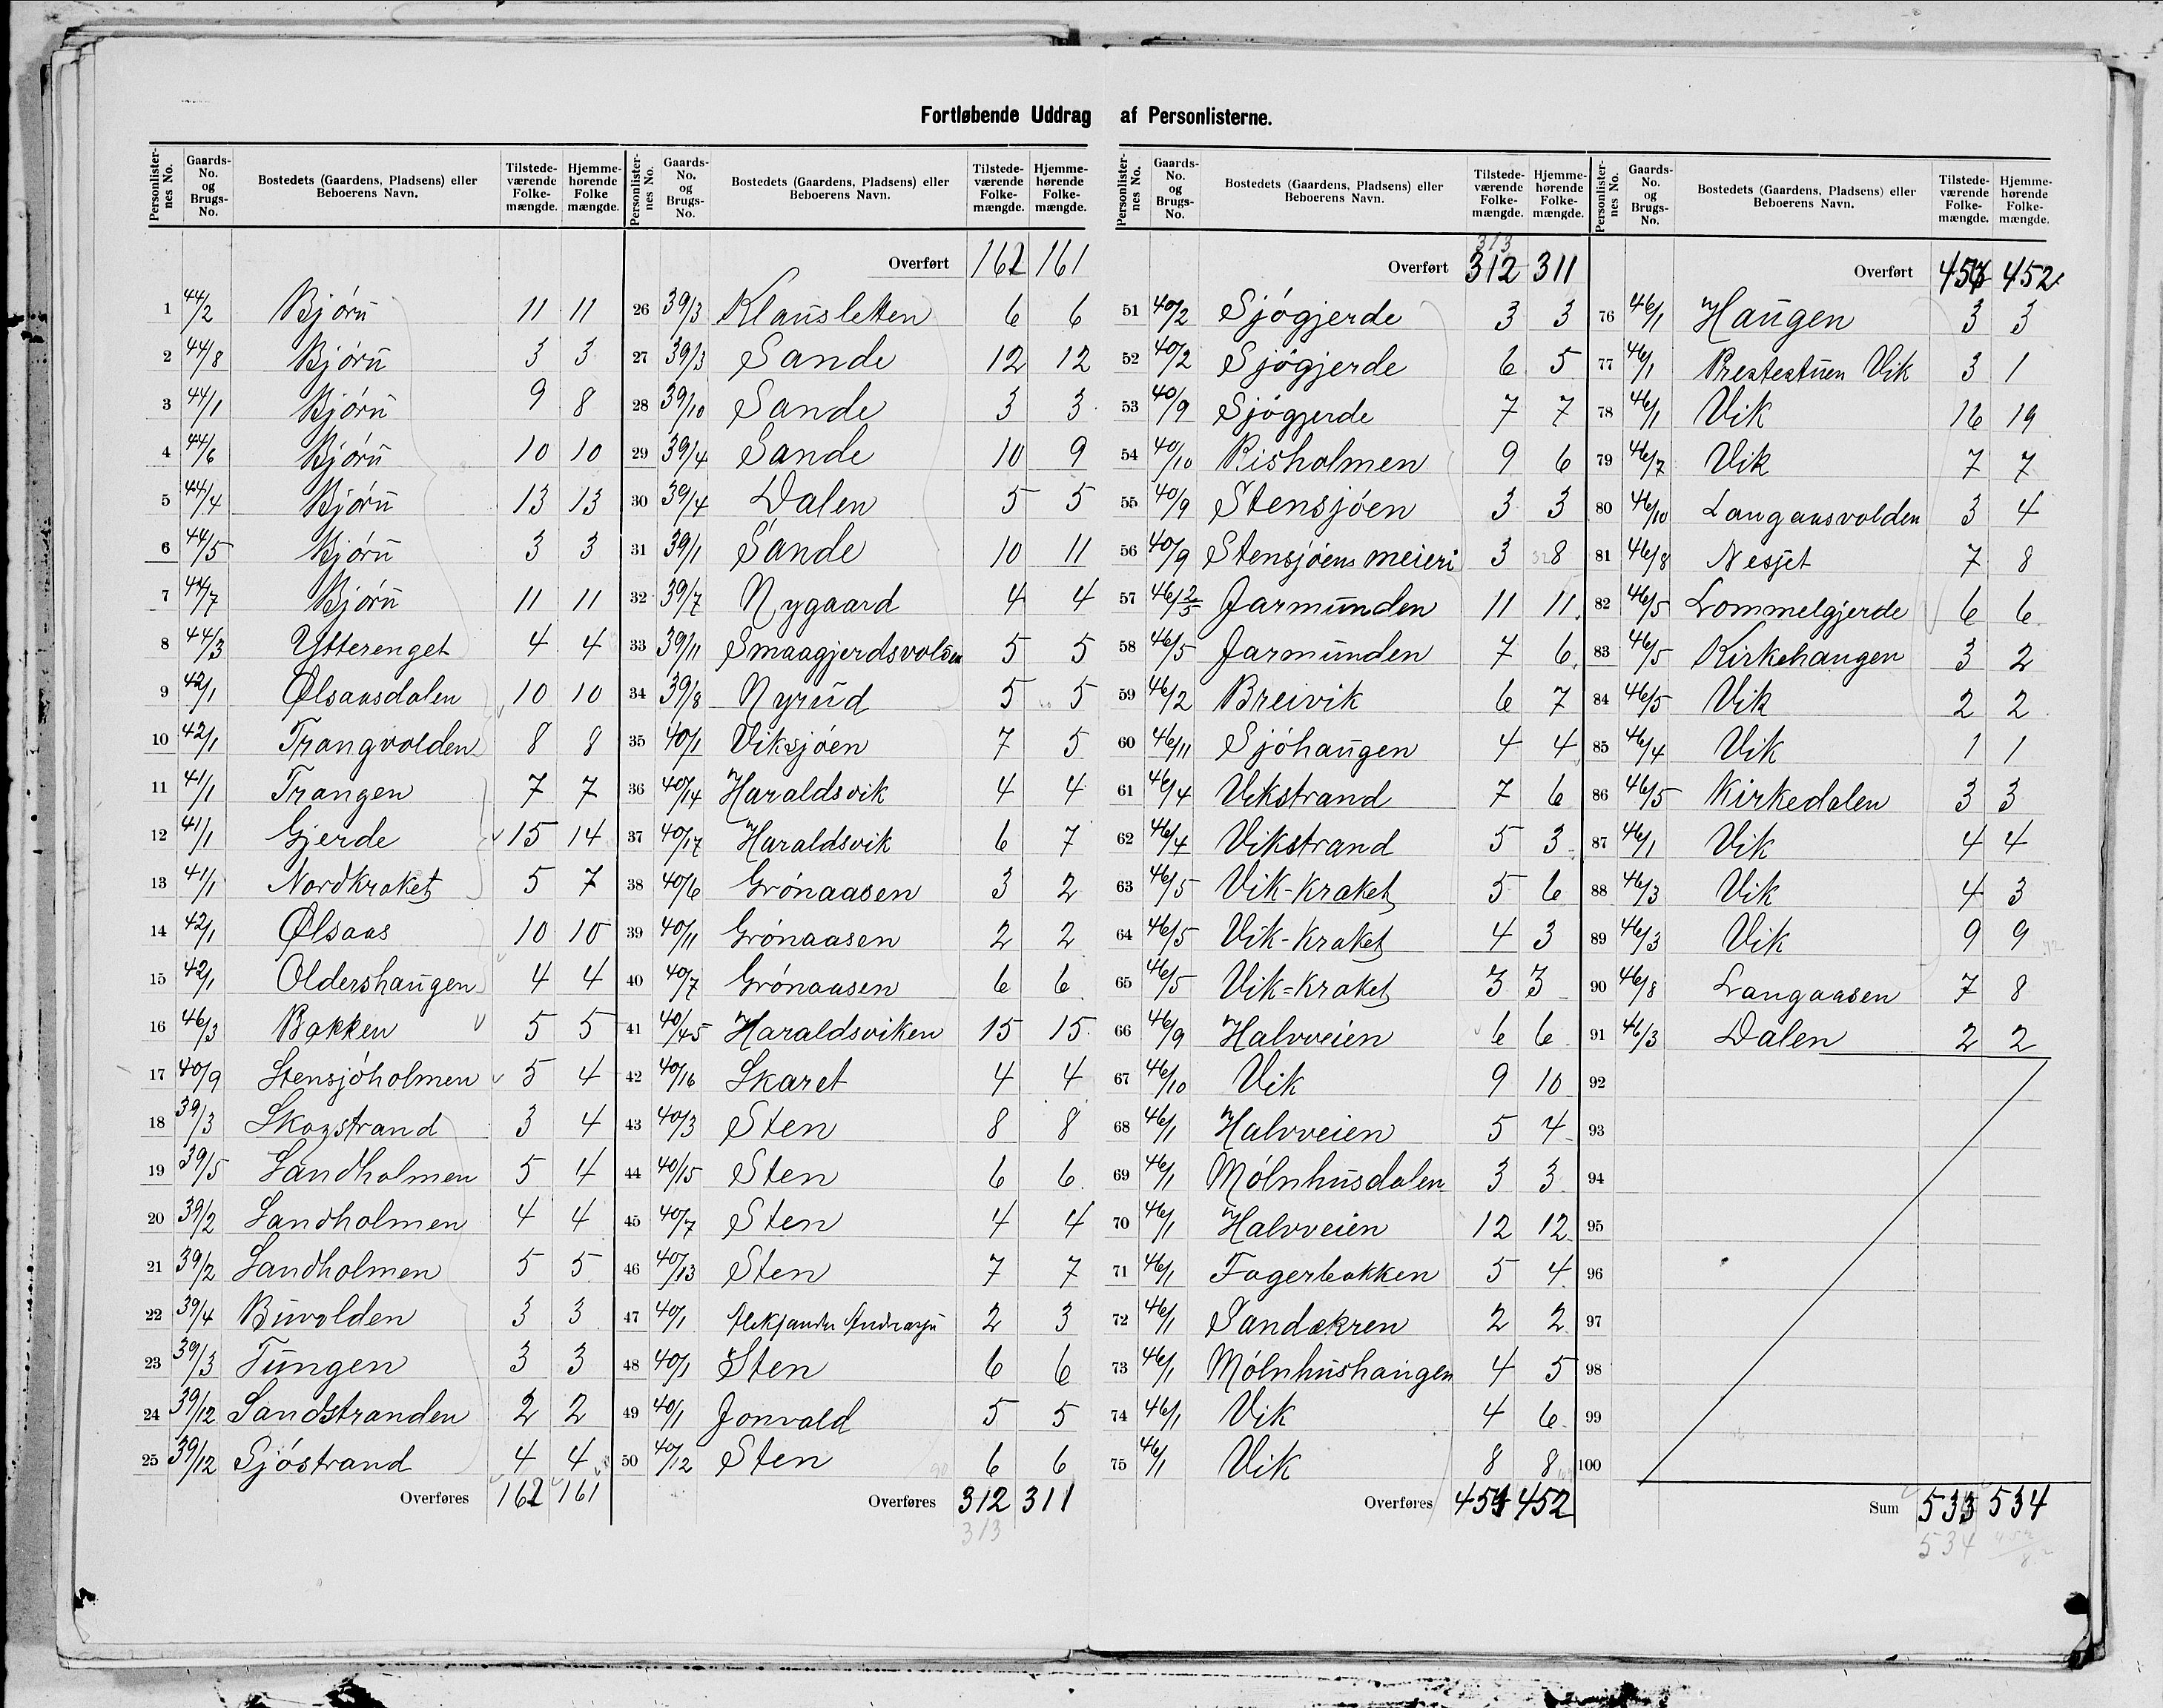 Fortløbende Uddrag af Personlisterne.
Personlister-nes No. Gaards-No. og Brugs-No. Bostedets (Gaardens, Pladsens) eller Beboerens Navn. Tilstede-værende Folke-mængde. Hjemme-hørende Folke mængde.
1 44/2 Bjórn 11 11
2 44/8 Bjórn 3 3
3 44/1 Bjórn 9 8
4 44/6 Bjórn 10 10
5 44/4 Bjórn 13 13
6 44/5 Bjórn 3 3
7 44/7 Bjórn 11 11
8 44/3 Ytterenget 4 4
9 42/1 Ølsaasdalen 10 10
10 42/1 Trangvolden 8 8
11 41/1 Trangen 7 7
12 41/1 Gjerde 15 14
13 41/1 Nordkraket 5 7
14 42/1 Ølsaas 10 10
15 42/1 Oldershaugen 4 4
16 46/3 Bakken 5 5
17 40/9 Stensjóholmen 5 4
18 39/3 Skogstrand 3 4
19 39/5 Sandholmen 5 4
20 39/2 Sandholmen 4 4
21 39/2 Sandholmen 5 5
22 39/4 Buvolden 3 3
23 39/3 Tungen 3 3
24 39/12 Sandstranden 2 2
25 39/12 Sjóstrand 4 4
Overføres 162 161
Personlister-nes No. Gaards-No. og Brugs-No. Bostedets (Gaardens, Pladsens) eller Beboerens Navn. Tilstede-værende Folke-mængde. Hjemme-hørende Folke-mængde.
Overført 162 161
26 39/3 Klausletten 6 6
27 39/3 Sande 12 12
28 39/10 Sande 3 3
29 39/4 Sande 10 9
30 39/4 Dalen 5 5
31 39/1 Sande 10 11
32 39/7 Nygaard 4 4
33 39/11 Smaagjerdsvolden 5 5
34 39/8 Nyrud 5 5
35 40/1 Viksjóen 7 5
36 40/14 Haraldsvik 4 4
37 40/17 Haraldsvik 6 7
38 40/6 Grónaasen 3 2
39 40/11 Grónaasen 2 2
40 40/7 Grónaasen 6 6
41 40/45 Haraldsviken 15 15
42 40/16 Skaret 4 4
43 40/3 Sten 8 8
44 40/15 Sten 6 6
45 40/7 Sten 4 4
46 40/13 Sten 7 7
47 40/1 2 3
48 40/1 Sten 6 6
49 40/1 Jonvold 5 5
50 40/12 Sten 6 6
Overføres 312 311
313
Personlister-nes No. Gaards-No. og Brugs-No. Bostedets (Gaardens, Pladsens) eller Beboerens Navn. Tilstede-værende Folke-mængde. Hjemme-hørende Folke-mængde.
313
Overført 312 311
51 40/2 Sjógjerde 3 3
52 40/2 Sjógjerde 6 5
53 40/9 Sjógjerde 7 7
54 40/10 Risholmen 9 6
55 40/9 Stensjóen 3 3
56 40/9 Stensjóens meieri 3 8
57 46/2/5 Jarmunden 11 11
58 46/5 Jarmunden 7 6
59 46/2 Breivik 6 7
60 46/11 Sjóhaugen 4 4
61 46/4 Vikstrand 7 6
62 46/4 Vikstrand 5 3
63 46/5 Vik-kraket 5 6
64 46/5 Vik-kraket 4 3
65 46/5 Vik=kraket 3 3
66 46/9 Halvveien 6 6
67 46/10 Vik 9 10
68 46/1 Halvveien 5 4
69 46/1 Mólnhusdalen 3 3
70 46/1 Halvveien 12 12
71 46/1 Fagerbakken 5 4
72 46/1 Sandakren 2 2
73 46/1 Mólnhushaugen 4 5
74 46/1 Vik 4 6
75 46/1 Vik 8 8
Overføres 452
Personlister-nes No. Gaards-No. og Brugs-No. Bostedets (Gaardens, Pladsens) eller Beboerens Navn. Tilstede-værende Folke-mængde. Hjemme-hørende Folke-mængde.
Overført 452
76 46/1 Haugen 3 3
77 46/1 Prestestuen Vik 3 1
78 46/1 Vik 16 19
79 46/7 Vik 7 7
80 46/10 Langaasvolden 3 4
81 46/8 Nesjet 7 8
82 46/5 Lommelgjerde 6 6
83 46/5 Kirkehaugen 3 2
84 46/5 Vik 2 2
85 46/4 Vik 1 1
86 46/5 Kirkedalen 3 3
87 46/1 Vik 4 4
88 46/3 Vik 4 3
89 46/3 Vik 9 9
90 46/8 Langaasen 7 8
91 46/3 Dalen 2 2
92
93
94
95
96
97
98
99
100
Sum 533 534
534